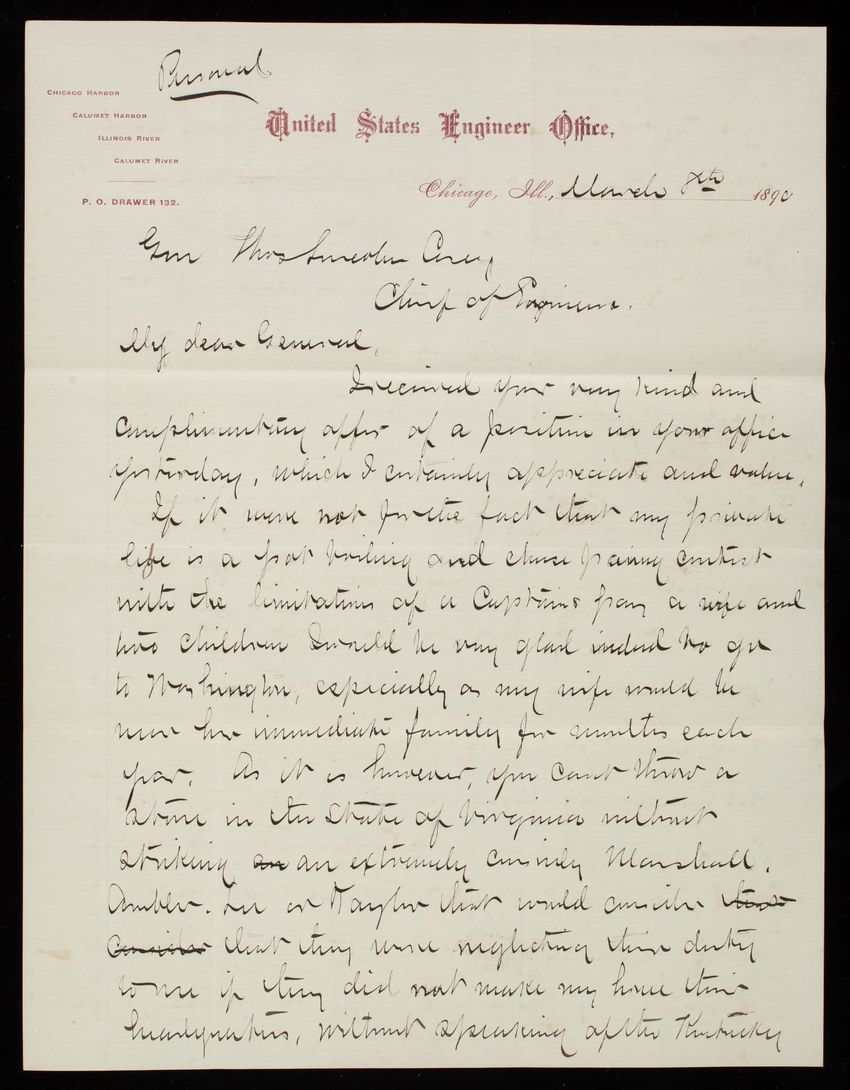 Personal
CHICAGO HARBOR
CALUMET HARBOR
ILLINOIS RIVER
CALUMET RIVER
P. O. DRAWER 132.
United States Engineer Office,
Chicago, Ill., March 8th 1890
Gen Thos Lincoln Casey
Chief of Engineers.
My dear General,
I received your very kind and
complimentary offer of a position in your office
yesterday, which I certainly appreciate and value.
If it were not for the fact that my private
life is a pot boiling and cheese paring contest
with the limitations of a Captains pay a wife and
two children I would be very glad indeed to go
to Washington, especially as my wife would be
near her immediate family for months each
year. As it is however, you cant throw a
stone in the State of Virginia without
striking an an extremely cousinly Marshall,
Ambler, Lee or Taylor that would consider that
consider that they were neglecting their duty
to me if they did not make my house their
headquarters, without speaking of the Kentucky